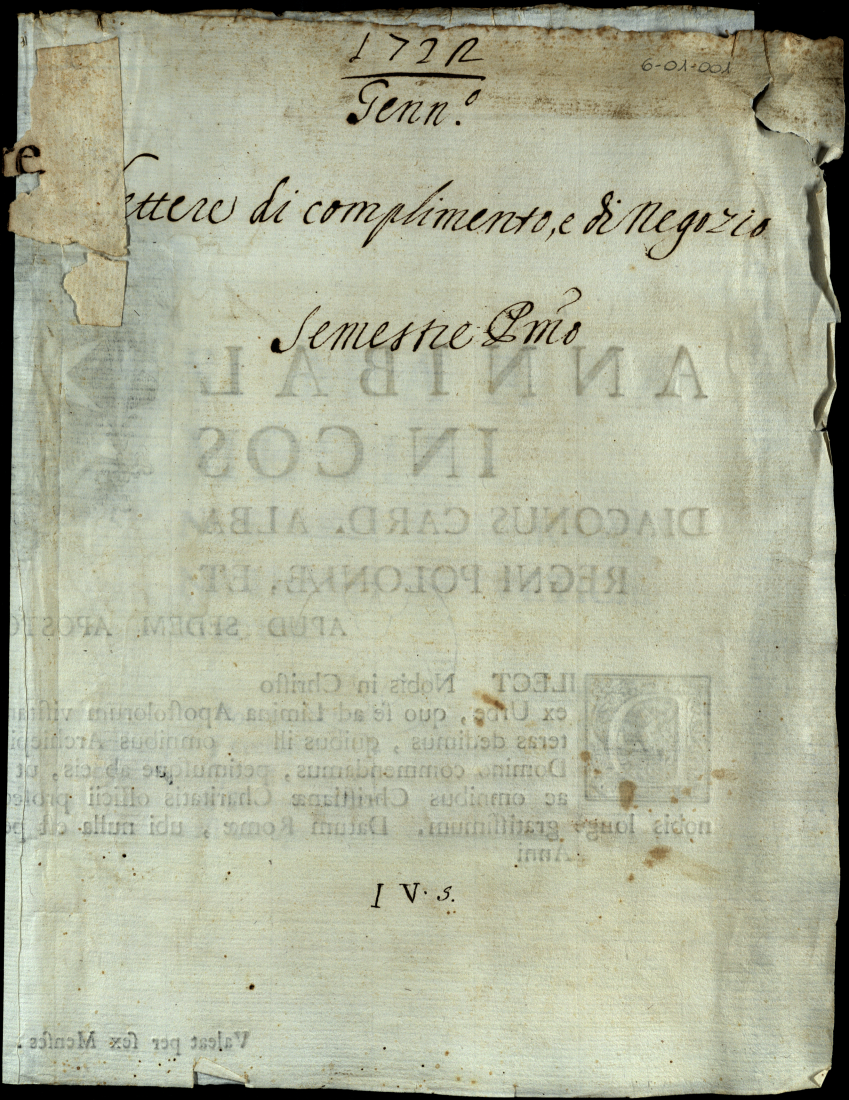 1722
6-01-001
Genn.º
re
ettere di complimento, e di Negozio
Semestre Pmo
ANNIBAL
IN COS
DIACONUS CARD. ALBA
REGNI POLONIÆ, ET
APUD SEDEM APOSTO
ILECT Nobis in Chriſto
ex Urbe, quo ſe ad Limina Apoſtolorum viſitan
teras dedimus, quibus ill omnibus Archiepi
Domino commendamus, petimuſque ab eis, ut
ac omnibus Chriſtianæ Charitatis officii proſe
nobis longè gratiſſimum. Datum Romæ, ubi nulla eſt pe
Anni
I V. s.
Valeat per ſex Menſes.